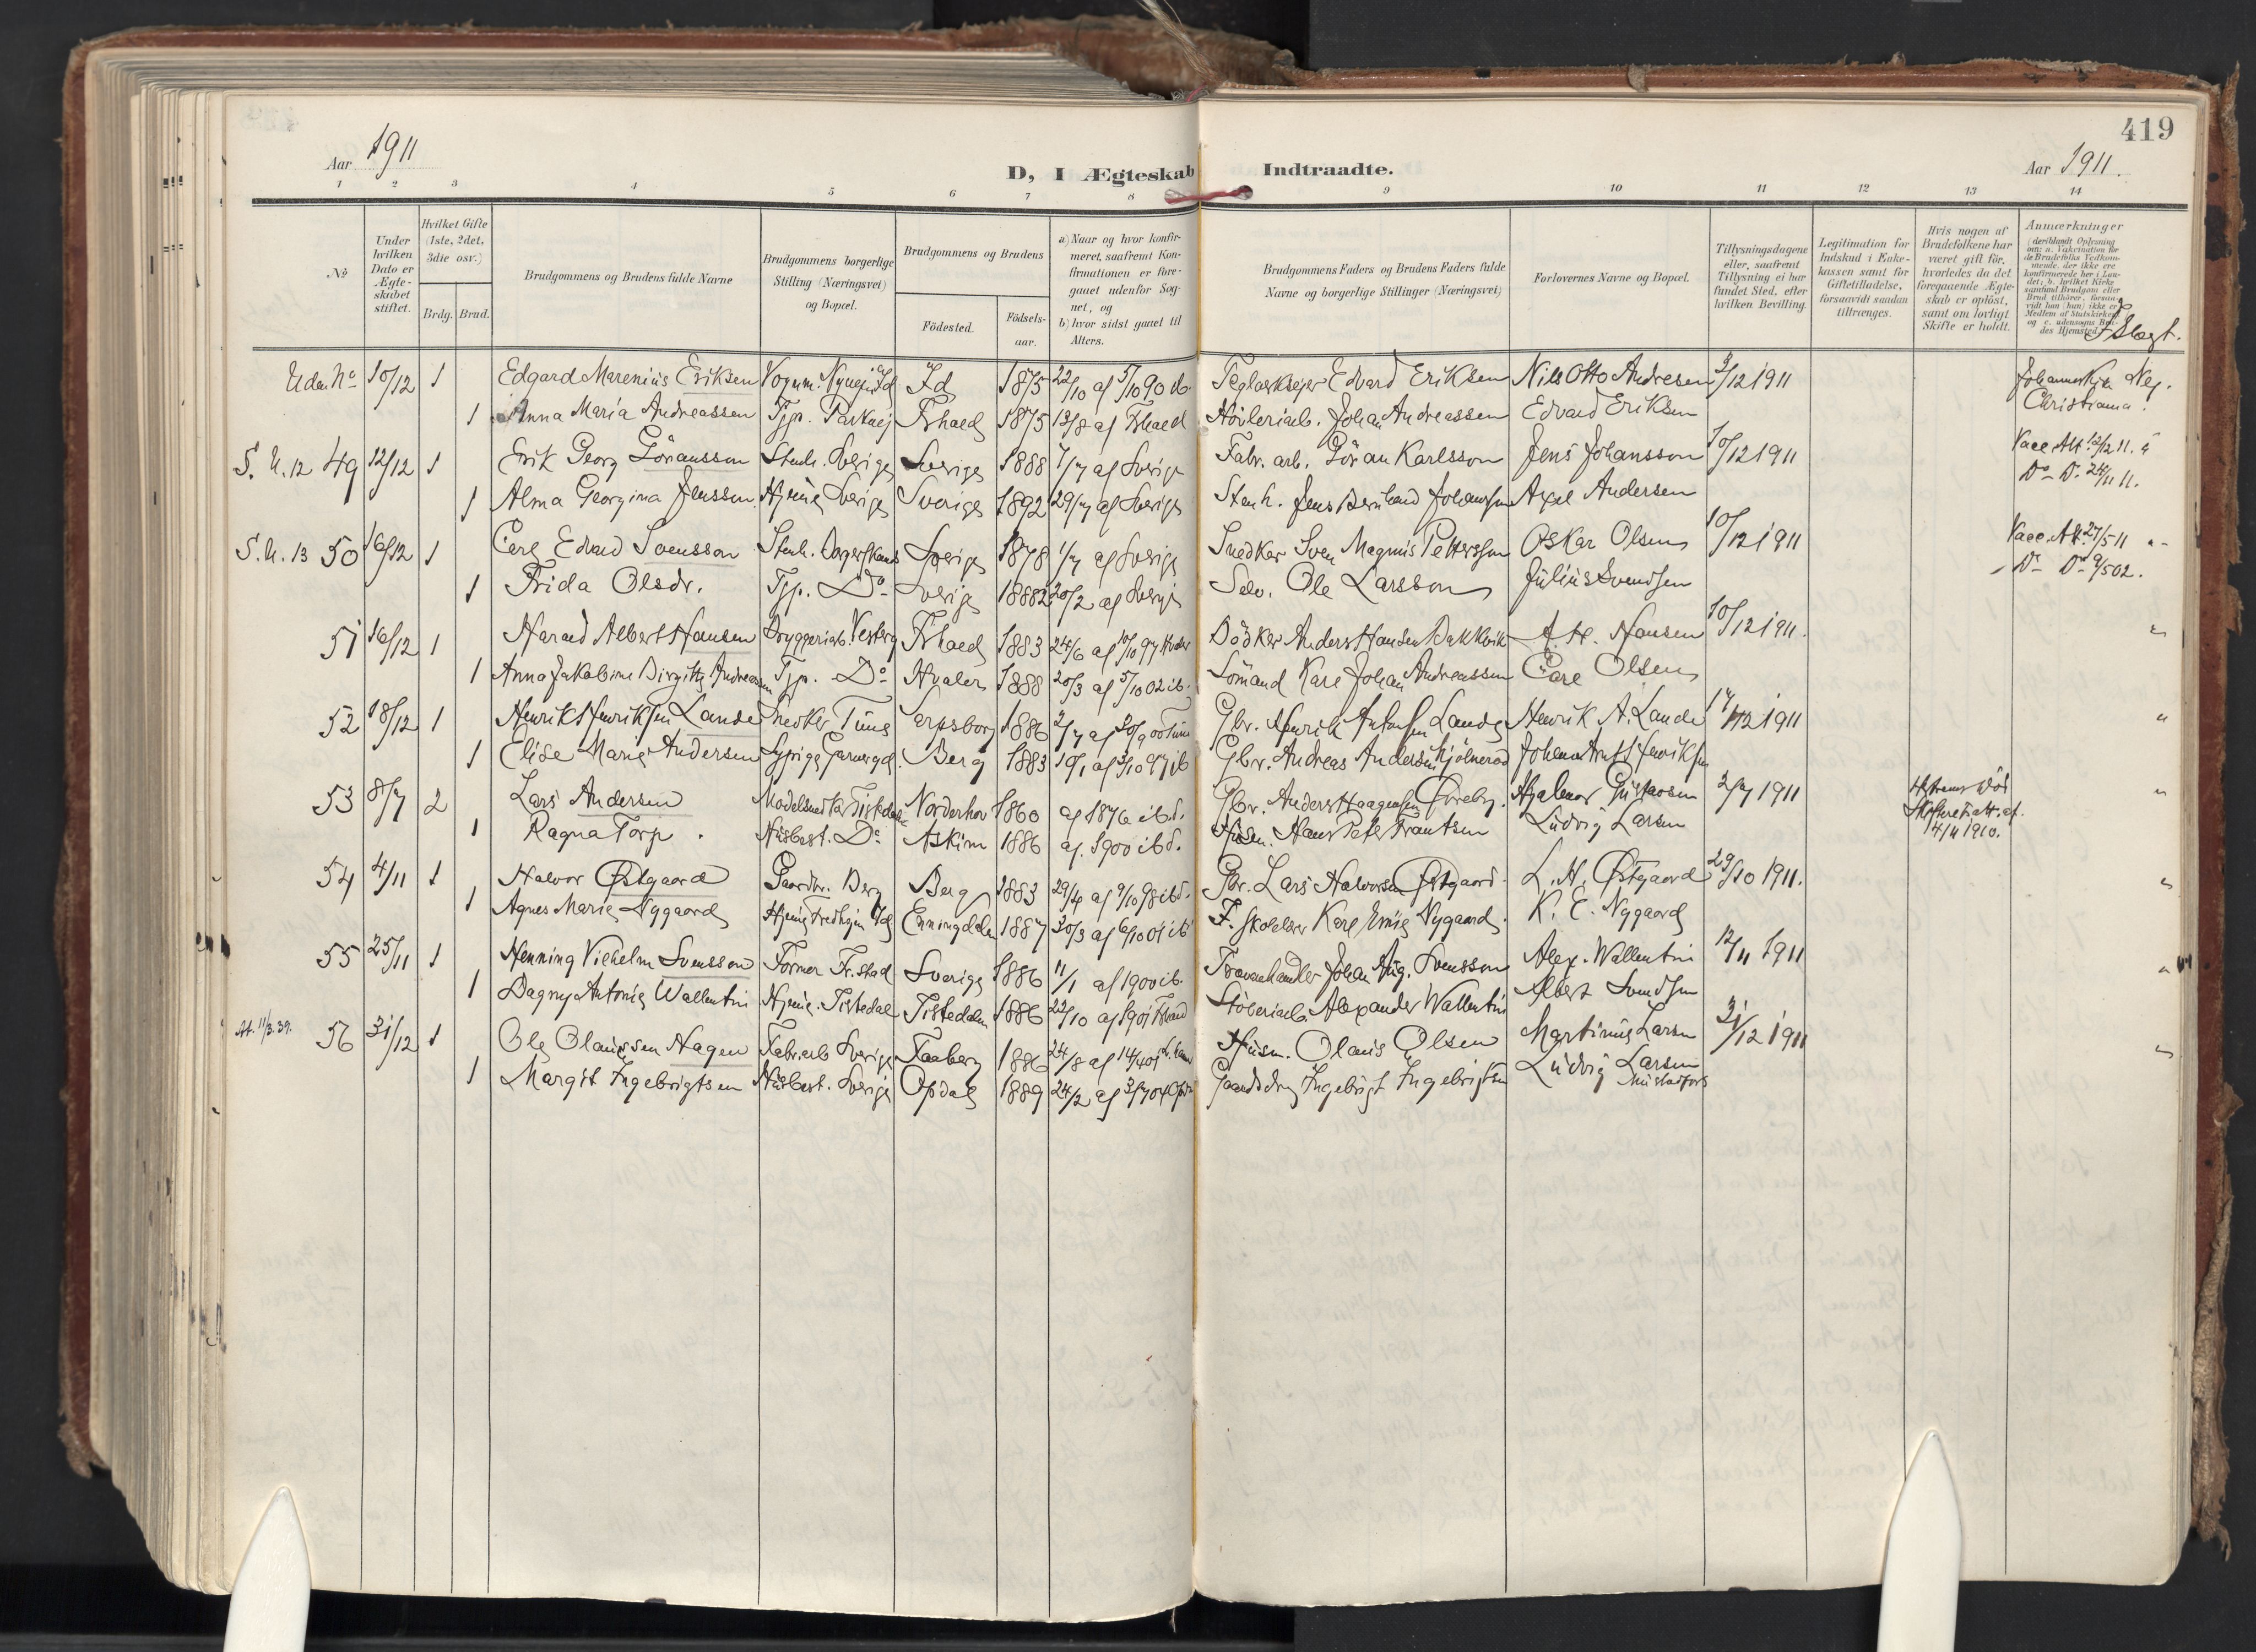 419
Aar 1911
D, I Ægteskab Indtraadte.
Aar 1911.
1 2 3 4 5 6 7 8 9 10 11 12 13 14
№
Under hvilken Dato er Ægteskabet stiftet.
Hvilket Gifte (1ste, 2det, 3die osv.)
Brdg. Brud.
Brudgommens og Brudens fulde Navne
Brudgommens borgerlige Stilling (Næringsvei) og Bopæl.
Brudgommens og Brudens
Fødested.
Fødselsaar.
a) Naar og hvor konfirmeret, saafremt Konfirmationen er foregaaet udenfor Sognet, og
b) hvor sidst gaaet til Alters.
Brudgommens Faders og Brudens Faders fulde Navne og borgerlige Stillinger (Næringsvei)
Forlovernes Navne og Bopæl.
Tillysningsdagene eller, saafremt Tillysning ei har fundet Sted, efter hvilken Bevilling.
Legitimation for Indskud i Enkekassen samt for Giftetilladelse, forsaavidt saadan tiltrænges.
Hvis nogen af Brudefolkene har været gift før, hvorledes da det foregaaende Ægteskab er opløst, samt om lovligt Skifte er holdt.
Anmærkninger
Uden No 10/12 1 Edgard Marenius Eriksen Id 1875 22/10 af 5/10 90 ib. Edvard Eriksen Nils Otto Andresen 3/12 1911
1 Anna Maria Andreassen Tjp. Fshald 1875 13/8 af Fshald Høvleriarb. Johan Andreassen Edvard Eriksen Christiania.
S. U. 12 49 12/12 1 Erik Georg Göransson Stenh. Sverige Sverige 1888 7/7 af Sverige Fabr. arb. Göran Karlsson Jens Johansson 10/12 1911 Vacc. Att. 12/12 11.
1 Alma Georgina Jensson Hjemme Sverige Sverige 1892 29/7 af Sverige Stenh. Jens Bernhard Johansson Axel Andersen Do D. 24/11 11.
S. U. 13 50 16/12 1 Carl Edvard Svensson Stenh. Sverige 1878 1/7 af Sverige Snedker Sven Magnus Pettersson Oskar Olsen 10/12 1911 Vacc. Att. 27/5 11
1 Frida Olsdr. Tjp. Do Sverige 1882 20/2 af Sverige Selv. Ole Larsson Julius Svendsen Do Do 9/5 02.
51 16/12 1 Harald Albert Hansen Bryggeriarb. Fshald 1883 24/6 af 10/10 97 Bødker Anders Hansen Bakkvik A. H. Hansen 10/12 1911.
1 Anna Jakobine Birgitte Andreassen Tjp. Do Hvaler 1888 20/3 af 5/10 02 ib. Sømand Karl Johan Andreassen Carl Olsen
52 18/12 1 Henrik Henriksen Lande Snedker Tune Sarpsborg 1886 2/7 af 30/9 00 Tune Gbr. Henrik Lande Henrik A. Lande 17/12 1911
1 Elise Marie Andersen Berg 1883 10/1 af 3/10 97 ib Gbr. Andreas Andersen
53 8/7 2 Lars Andersen Modelsnedker Tistedalen Norderhov 1860 af 1876 ibd. Gbr. Anders Haagensen Hjalmar Gustavsen 2/7 1911
1 Ragna Torp. Husbest. Do Askim 1886 af. 1900 ibd. Husm. Hans Peter Frantsen Ludvig Larsen 14/11 1910.
54 4/11 1 Halvor Østgaard Gaardbr. Berg Berg 1883 29/4 af 9/10 98 ibd. Gbr. Lars Halvorsen Østgaard L. H. Østgaard 29/10 1911.
1 Agnes Marie Nygaard Enningdalen 1887 30/3 af 6/10 01 ib F. skolelærer Karl Emil Nygaard K. E. Nygaard
55 25/11 1 Henning Vilhelm Svensson Former Fr.stad Sverige 1886 11/1 af 1900 ib. Johan Aug. Svensson Alex. Wallentin 12/11 1911
1 Dagny Antonie Wallentin Hjemme. Tistedal Tistedalen 1886 22/10 af 1901 Fshald Støberiarb. Alexander Wallentin Albert Svendsen
At. 11/3. 39. 56 31/12 1 Ole Olaussen Hagen Fabr.arb Sverige Faaberg 1886 24/8 af 14/4 01 Husm. Olaus Olsen Martinus Larsen 31/12 1911
1 Margit Ingebrigtsen Husbest. Sverige Opdal 1889 24/2 af 3/7 04 Opdal Ingebrigt Ingebrigtsen Ludvig Larsen